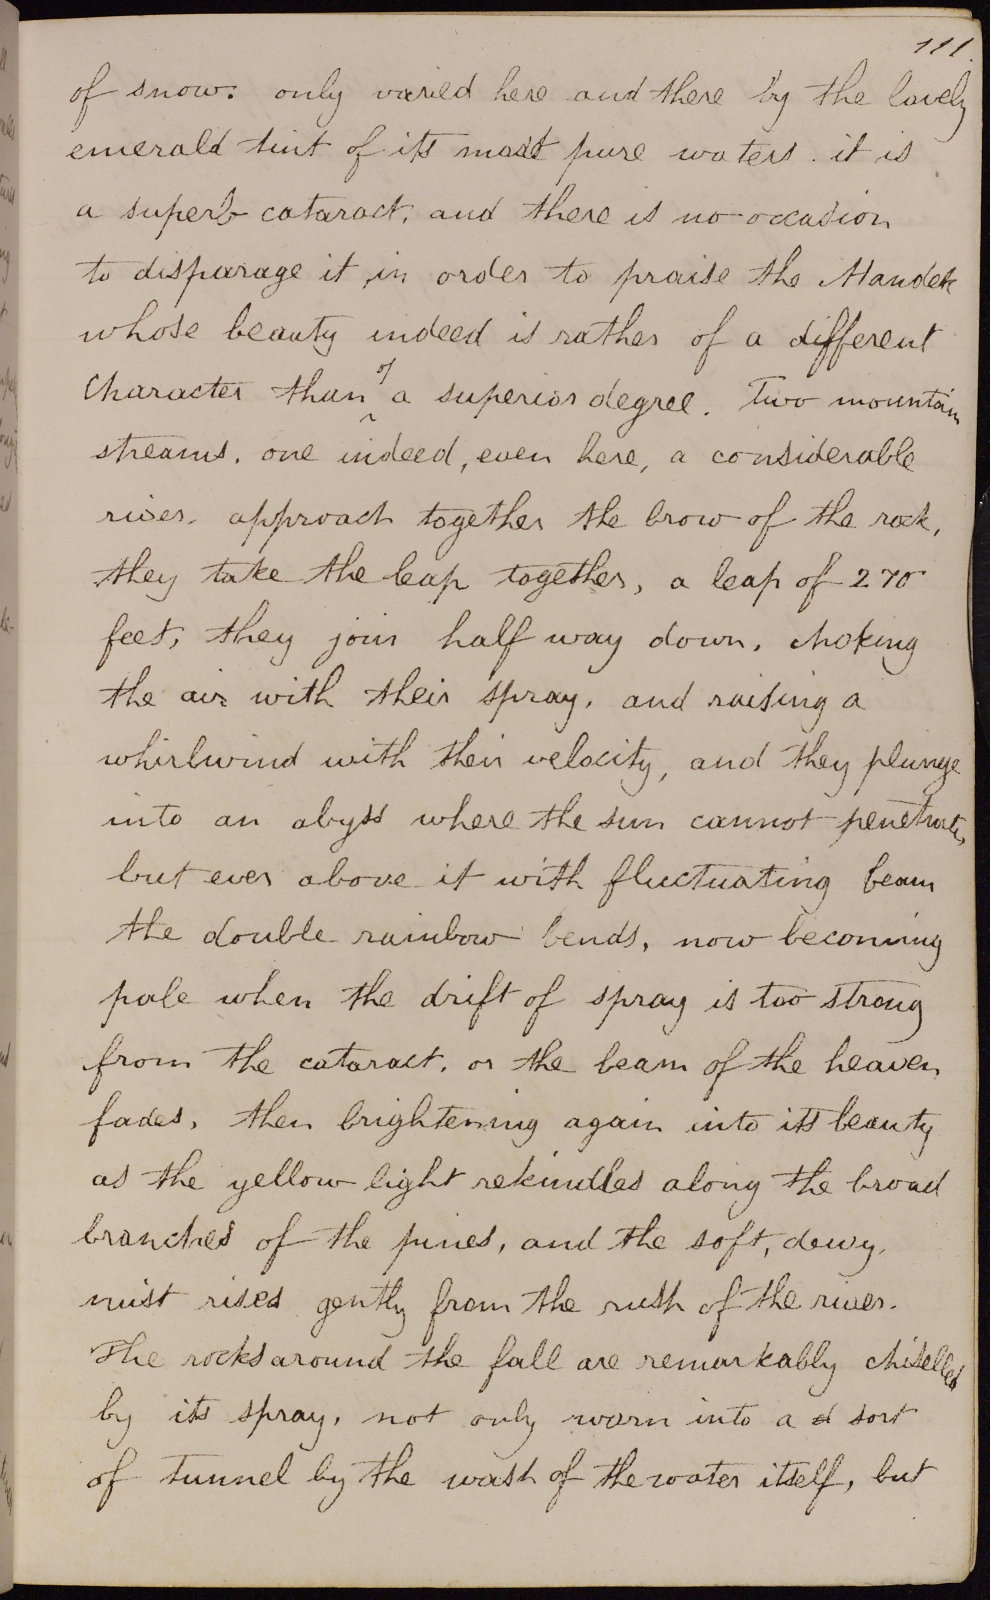 111.
of snow. only varied here and there by the lovely
emerald tint of its most pure waters. it is
a superb cataract, and there is no occasion
to disparage it, in order to praise the Handek
whose beauty indeed is rather of a different
Character than of a superior degree. Two mountain
streams, one indeed, even here, a considerable
river, approach together the brow of the rock,
they take the leap together, a leap of 270
feet, they join half way down, choking
the air with their spray, and raising a
whirlwind with their velocity, and they plunge
into an abyss where the sun cannot penetrate,
but ever above it with fluctuating beam
the double rainbow bends, now becoming
pale when the drift of spray is too strong
from the cataract, or the beam of the heaven
fades, then brightening again into its beauty
as the yellow light rekindles along the broad
branches of the pines, and the soft, dewy,
mist rises gently from the rush of the river.
The rocks around the fall are remarkably chiselled
by its spray, not only worn into a sort
of tunnel by the wash of the water itself, but